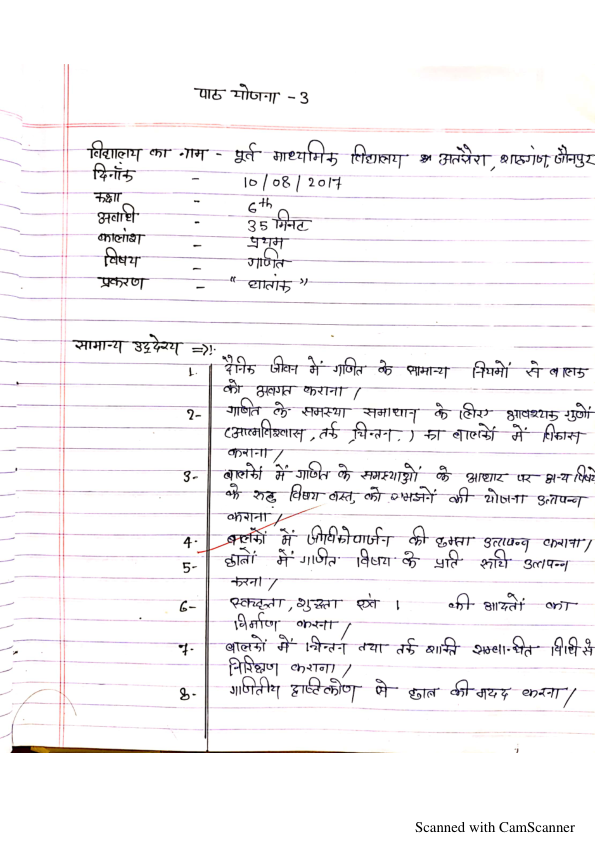 पाठ योजना - 3
विद्यालय का नाम - पूर्व माध्यमिक विद्यालय अतसैरा, शाहगंज, जौनपुर
दिनाँक - 10/08/2017
कक्षा - 6th
अवधि - 35 मिनट
कालांश - प्रथम
विषय - गणित
प्रकरण - "घातांक"
सामान्य उद्देश्य ⇒:-
1. दैनिक जीवन में गणित के सामान्य नियमों से बालक
को अवगत कराना।
2- गणित के समस्या समाधान के लिए आवश्यक गुणों
(आत्मविश्वास, तर्क, चिन्तन.) का बालकों में विकास
कराना।
3- बालकों में गणित के समस्याओं के आधार पर अन्य विषय
के विषय वस्तु को समझने की योजना उत्पन्न
कराना।
4. बालकों में जीविकोपार्जन की क्षमता उत्पन्न कराना।
5- छात्रों में गणित विषय के प्रति रूचि उत्पन्न
करना।
6- स्वच्छता, शुद्धता एवं । की आदतों का
निर्माण करना।
7. बालकों में चिन्तन तथा तर्क शक्ति विधि से
निरिक्षण कराना।
8- गणितीय दृष्टिकोण से छात्र की मदद करना।
Scanned with CamScanner